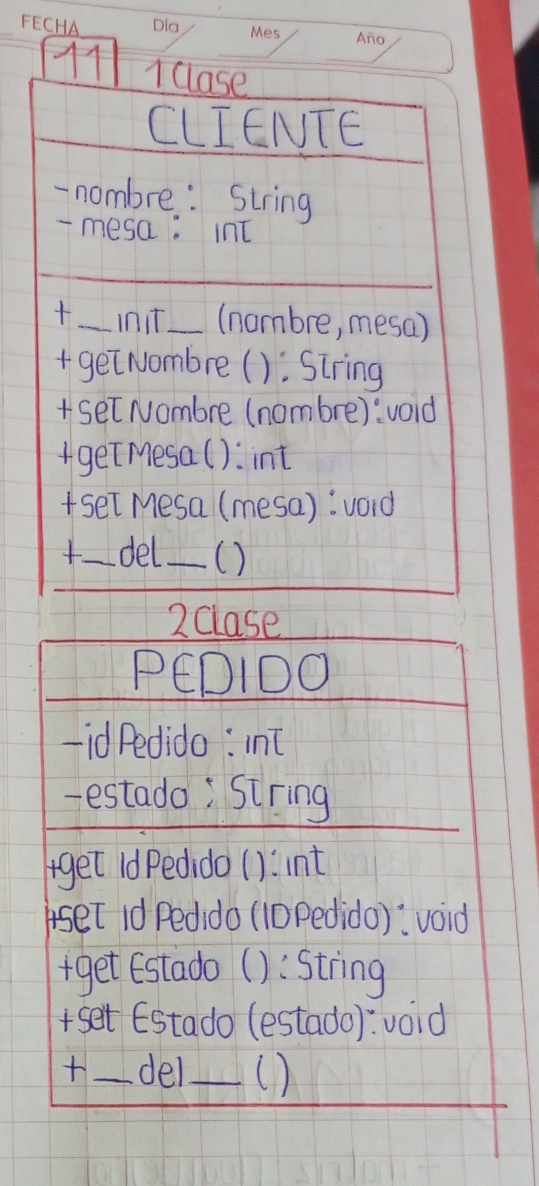 FECHA Día Mes Año
11 1 Clase
CLIENTE
-nombre: String
-mesa: int
+__init__ (nombre, mesa)
+getNombre (): String
+setNombre (nombre): void
+getMesa(): int
+setMesa (mesa): void
+__del__ ()
2 Clase
PEDIDO
-idPedido: int
-estado: String
+get idPedido (): int
+set id Pedido (IDPedido): void
+get Estado (): String
+set Estado (estado): void
+__del__ ()